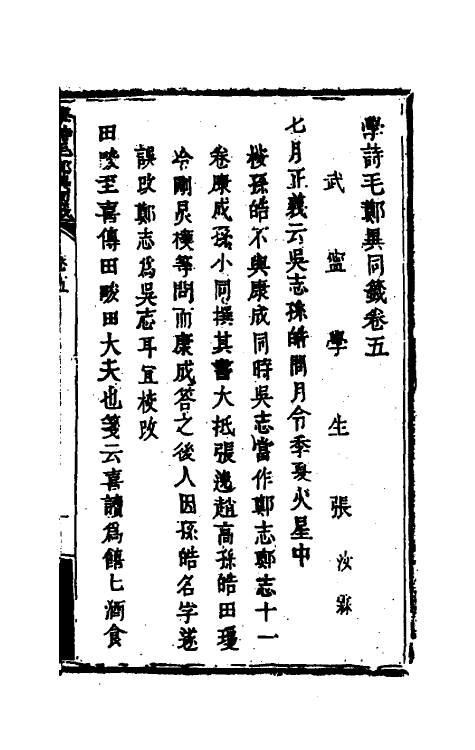 學詩毛鄭異同籤卷五
武寧學生張汝霖
七月正義云吳志孫皓問月令季夏火星中
棱孫皓不與康成同時吳志當作鄭志鄭志十一
卷康成孫小同撰其書大抵張逸趙商孫皓田瓊
冷剛炅模等問而康成答之後人因孫皓名字遂
誤改鄭志爲吳志耳宜棱改
田畯至喜傳田畯田大夫也箋云喜讀爲饎饎酒食